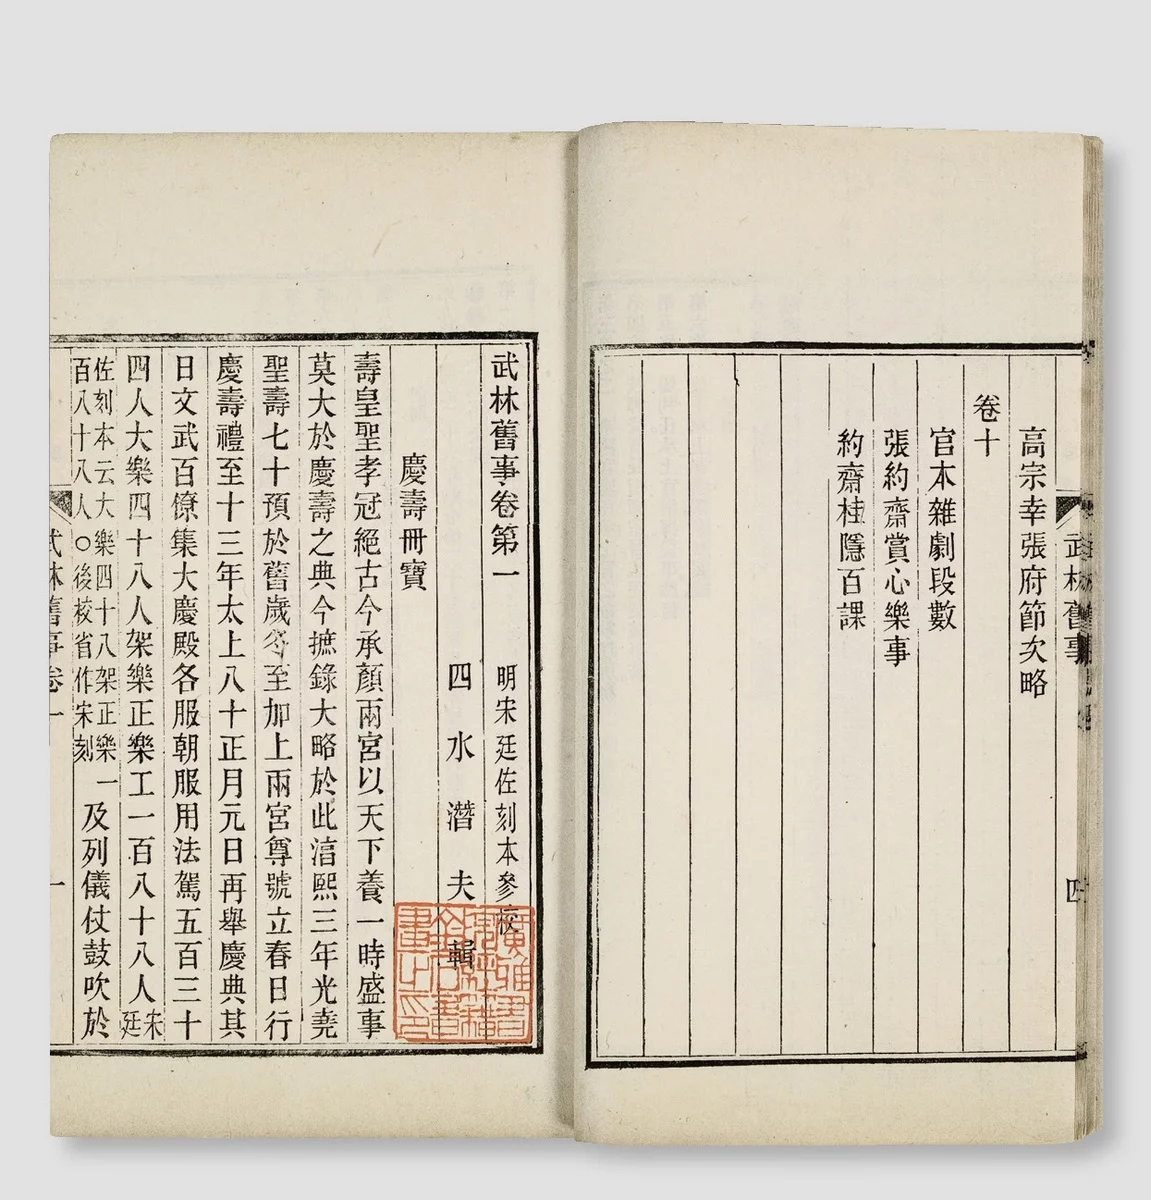 武林舊事
四
高宗幸張府節次略
卷十
官本雜劇段數
張約齋賞心樂事
約齋桂隱百課
武林舊事卷第一
明宋廷佐刻本參校
四水潛夫輯
慶壽冊寶
壽皇聖孝冠絕古今承顏兩宮以天下養一時盛事
莫大於慶壽之典今摭錄大略於此湻熙三年光堯
聖壽七十預於舊歲冬至加上兩宮尊號立春日行
慶壽禮至十三年太上八十正月元日再舉慶典其
日文武百僚集大慶殿各服朝服用法駕五百三十
四人大樂四十八人架樂正樂工一百八十八人宋廷
佐刻本云大樂四十八架正樂一百八十八人○後校省作宋刻及列儀仗鼓吹於
武林舊事卷一
一